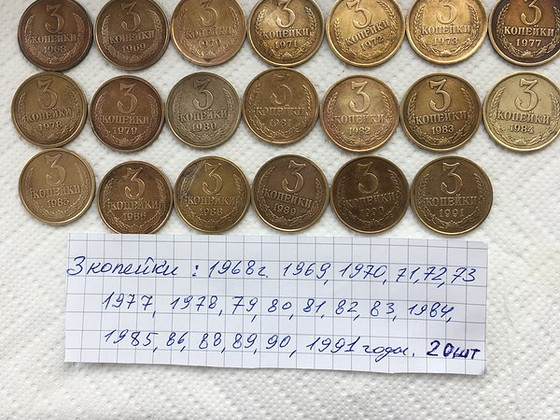 3 КОПЕЙКИ 1968
3 КОПЕЙКИ 1969
3 КОПЕЙКИ 1971
3 КОПЕЙКИ 1972
3 КОПЕЙКИ 1973
3 КОПЕЙКИ 1977
3 КОПЕЙКИ
3 КОПЕЙКИ 1979
3 КОПЕЙКИ 1980
3 КОПЕЙКИ 1981
3 КОПЕЙКИ 1982
3 КОПЕЙКИ 1983
3 КОПЕЙКИ 1984
3 КОПЕЙКИ 1985
3 КОПЕЙКИ 1986
3 КОПЕЙКИ 1988
3 КОПЕЙКИ 1989
3 КОПЕЙКИ 1990
3 КОПЕЙКИ 1991
3 копейки : 1968г. 1969, 1970, 71, 72, 73
1977, 1978, 79, 80, 81, 82, 83, 1984,
1985, 86, 88, 89, 90, 1991 годы. 20шт